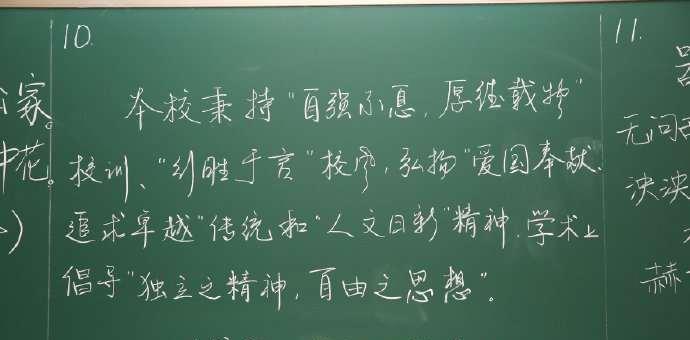 家。
花。
10.
本校秉持“自强不息，厚德载物”
校训、“行胜于言”校风，弘扬“爱国奉献、
追求卓越”传统和“人文日新”精神.学术上
倡导“独立之精神，自由之思想”。
11.
无问
泱泱
赫